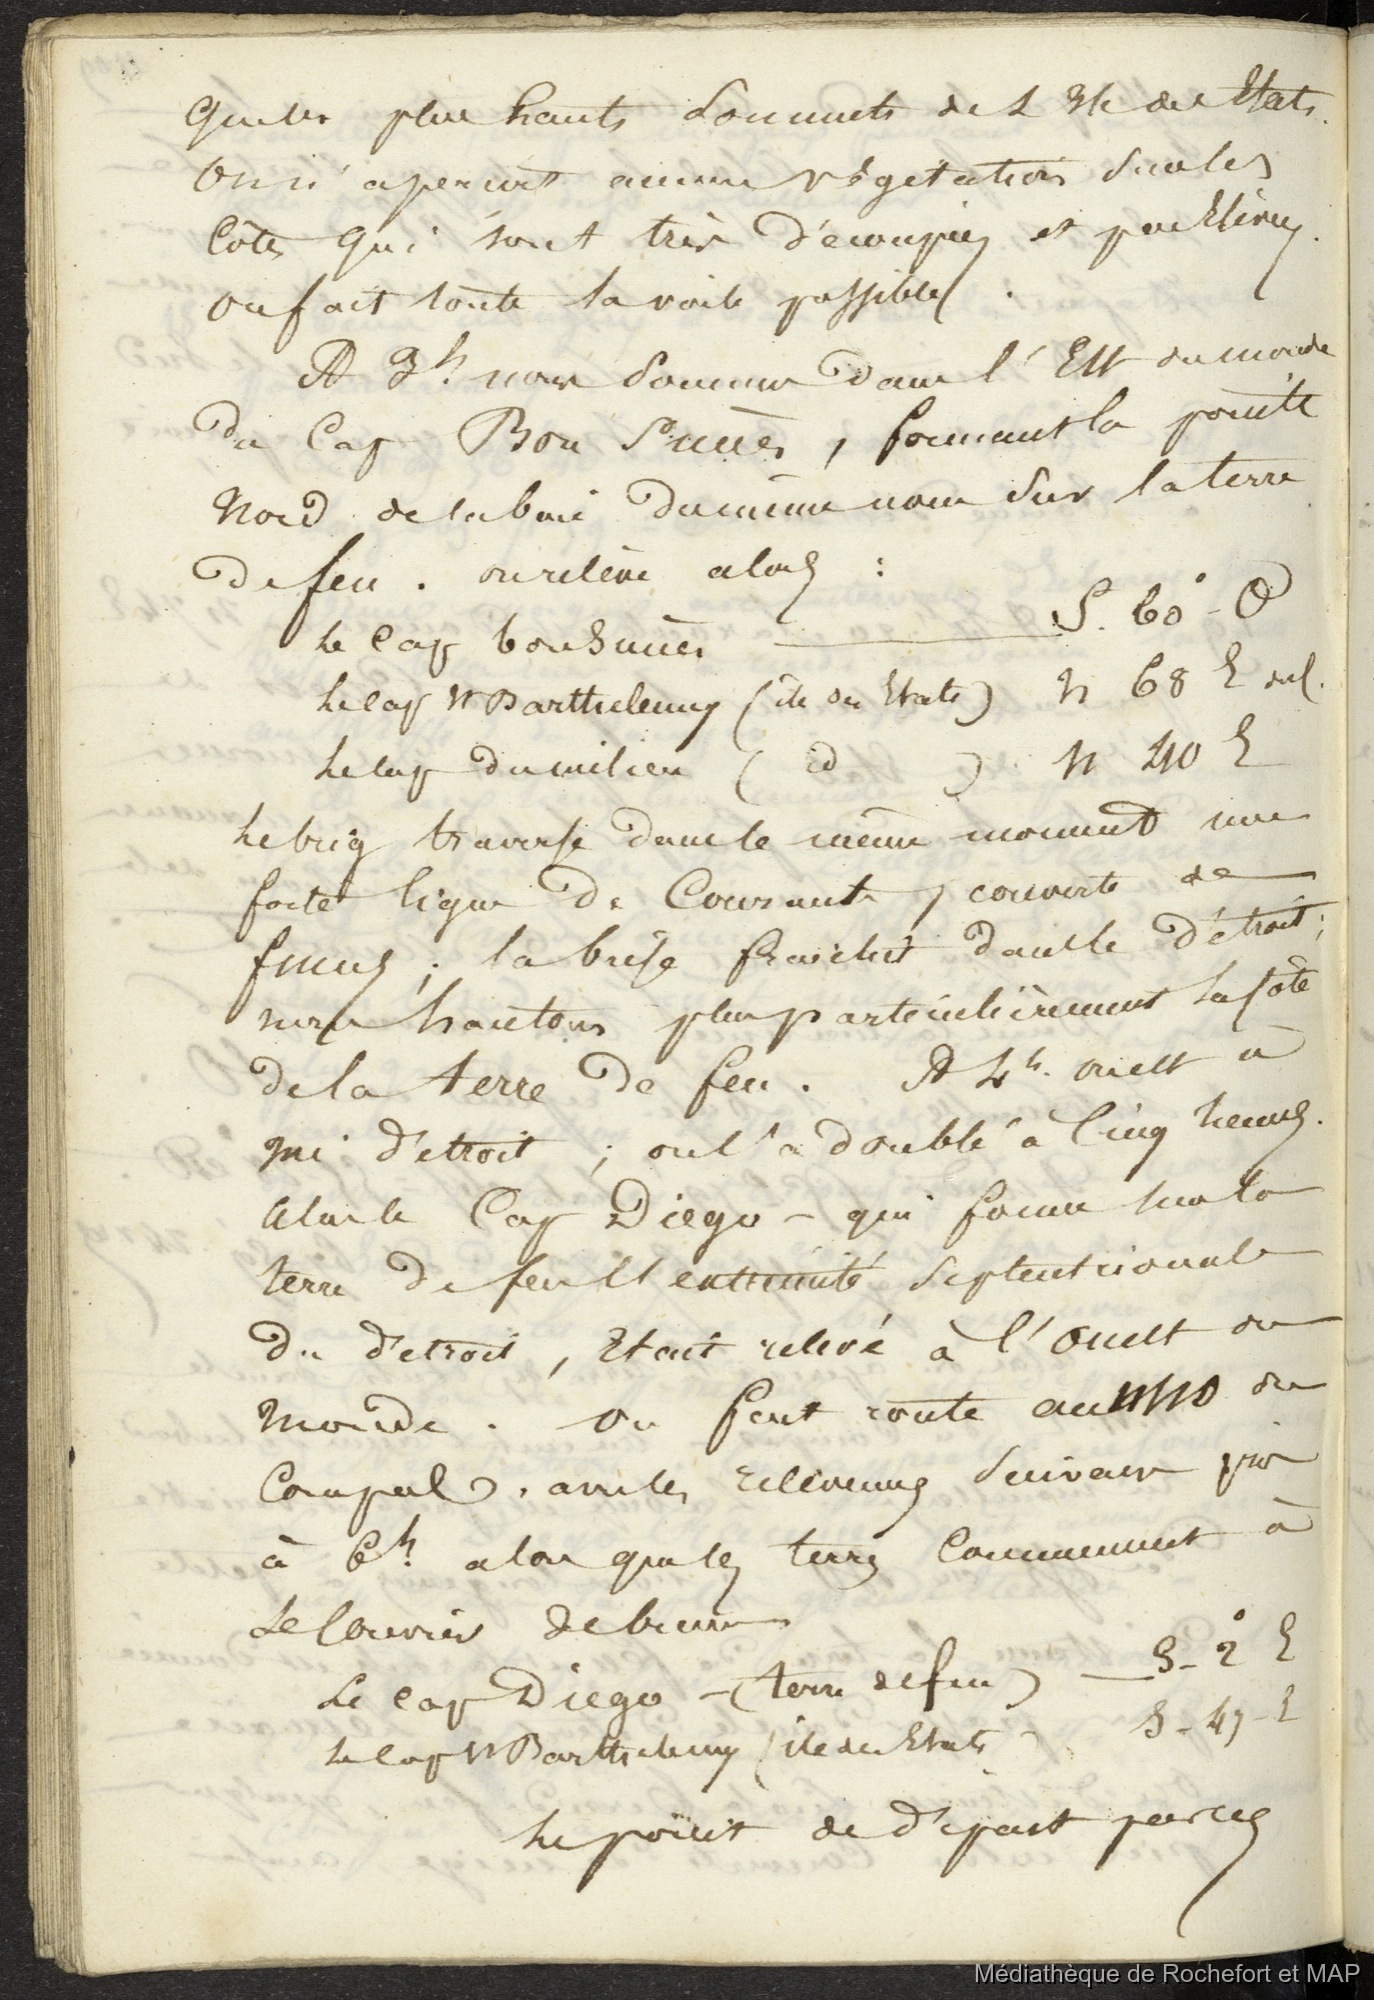 que les plus hauts sommets de l'Ile des Etats.
On n'aperçoit aucune végétation sur les
côtes qui sont très découpées et peu élevées.
on fait toute la voile possible.
A 3h. nous sommes dans l'Est du monde
du Cap Bon Succès, formant la pointe
Nord de la baie du même nom sur la terre
de feu. on relève alors :
le cap bon Succès S. 60° - O
le cap St Barthelemy (ile des Etats) N 68 E
le cap du milieu (id) N 40 E
le brig traverse dans le même moment une
forte ligne de Courants, couverte de
fucus ; la brise fraichit dans le détroit ;
nous hantons plus particulièrement la côte
de la terre de feu. A 4h. on est à
mi détroit ; on l'a doublé à cinq heures.
alors le Cap Diego - qui forme sur la
terre de feu l'extrémité septentrionale
du détroit, était relevé à l'ouest du
monde. On fait route au NNO du
Compas. avec les relèvemens suivans pris
à 6h. alors que les terres commencent à
se couvrir de brume
le cap Diego - (terre de feu) S - 2° E
le cap St Barthelemy (ile des Etats) S - 47 - E
le point de départ par ces
Médiathèque de Rochefort et MAP